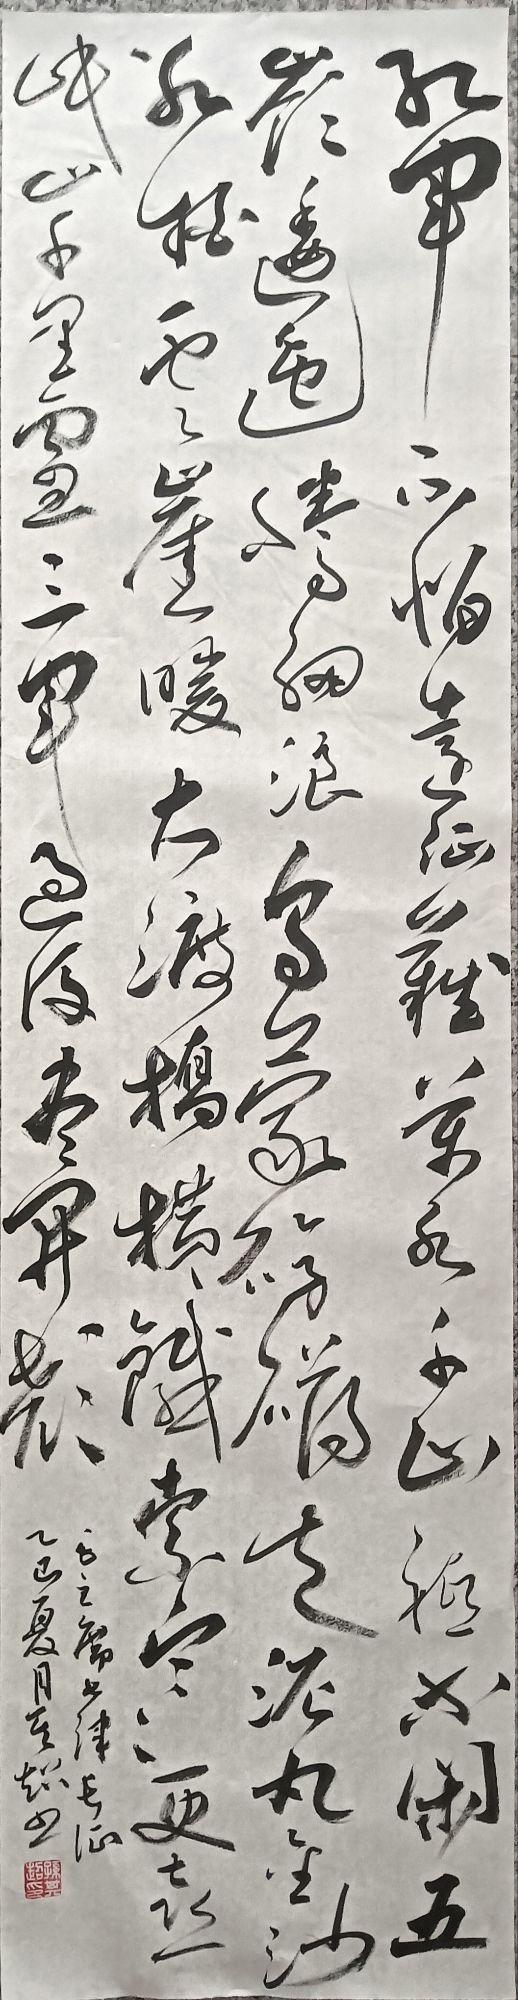 红军不怕远征难万水千山只等闲五
岭逶迤腾细浪乌蒙磅礴走泥丸金沙
水拍云崖暖大渡桥横铁索寒更喜
岷山千里雪三军过后尽开颜
毛主席七律长征
乙巳夏月 超书